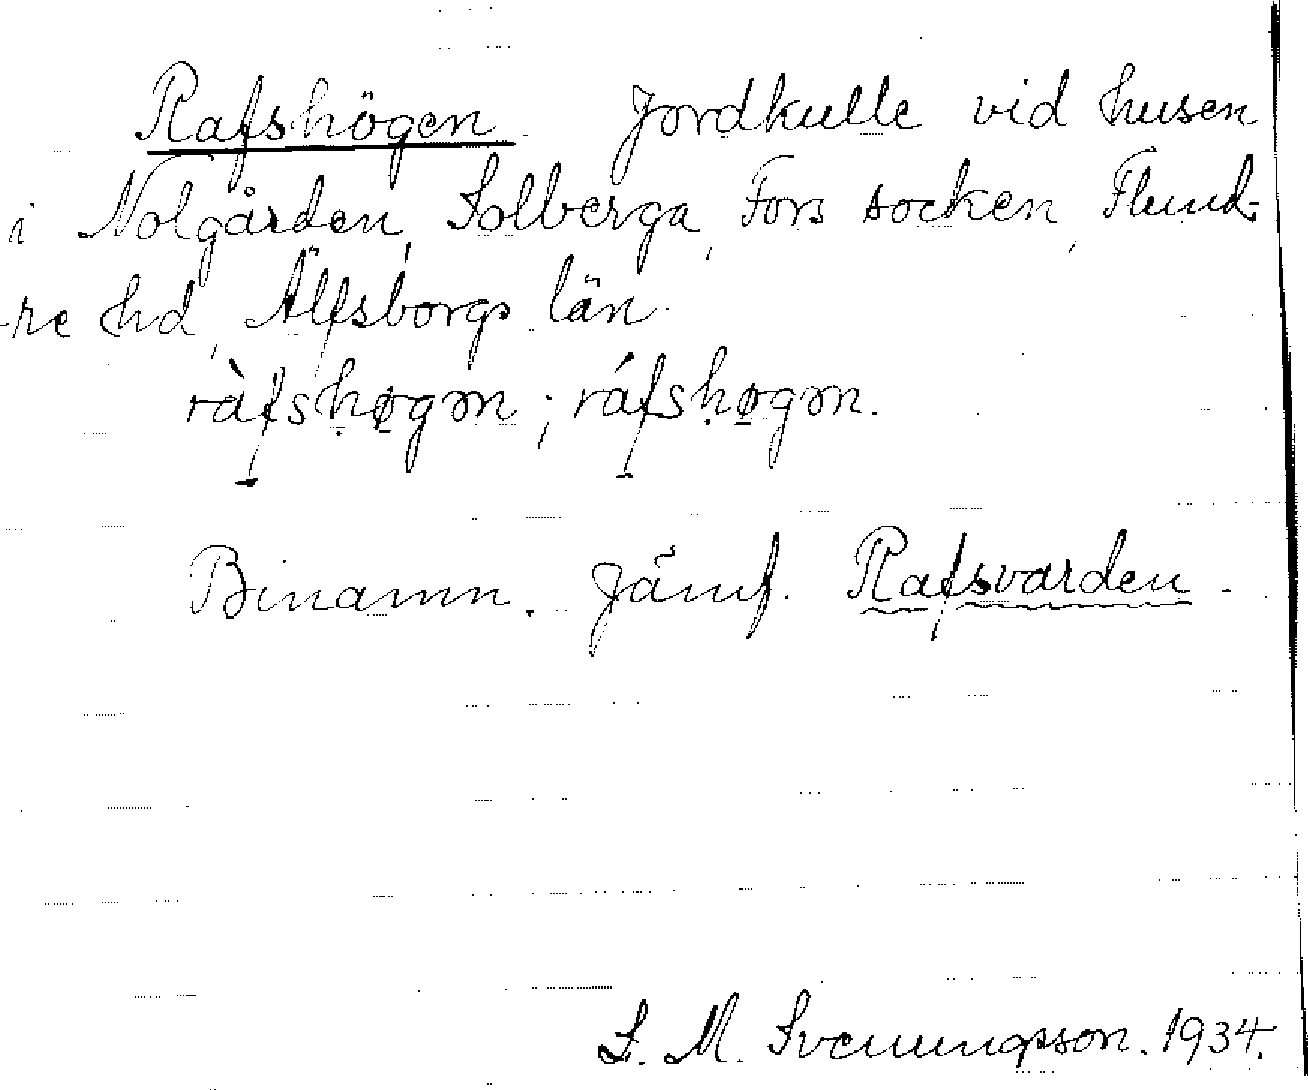 Rafshögen Jordkulle vid husen
i Nolgården, Solberga, Fors socken, Flund-
-re hd, Älfsborgs län.
ràfshøgən; ráfshøgən.
Binamn. Jämf. Rafsvarden.
S. M. Svenungsson. 1934.